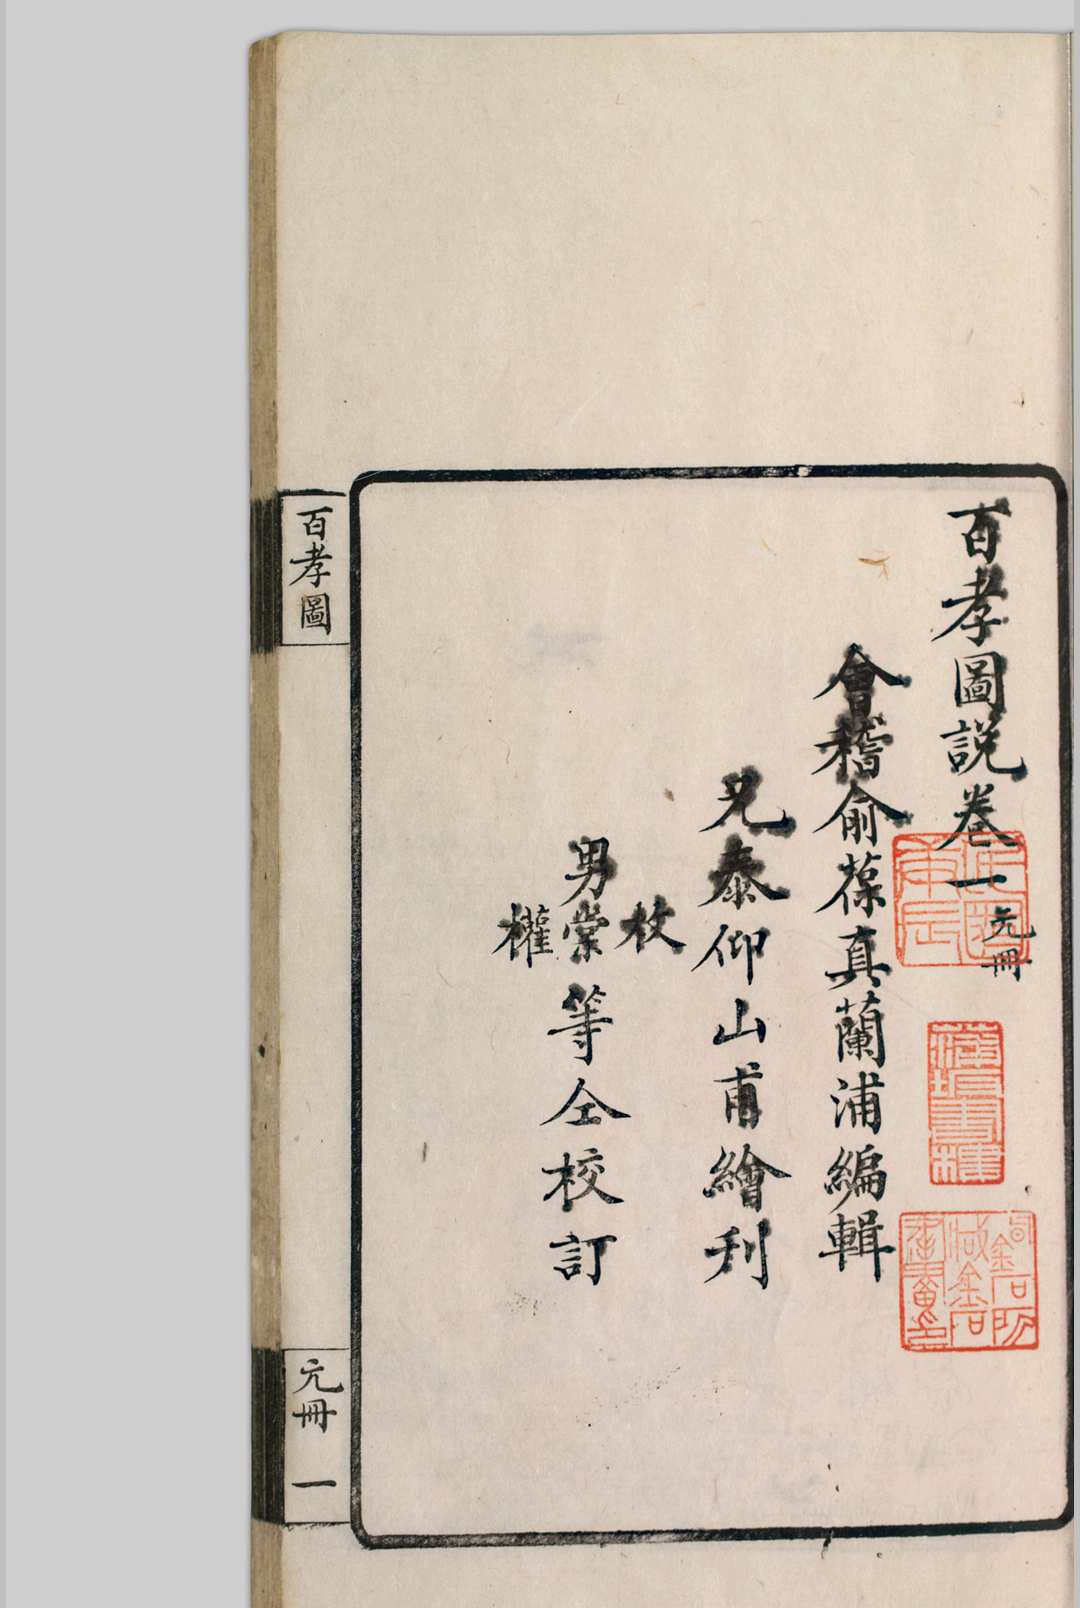 百孝圖說卷一 元冊
會稽俞葆真蘭浦編輯
兄泰仰山甫繪刊
枚
男棠等仝校訂
權
百孝圖
元冊 一